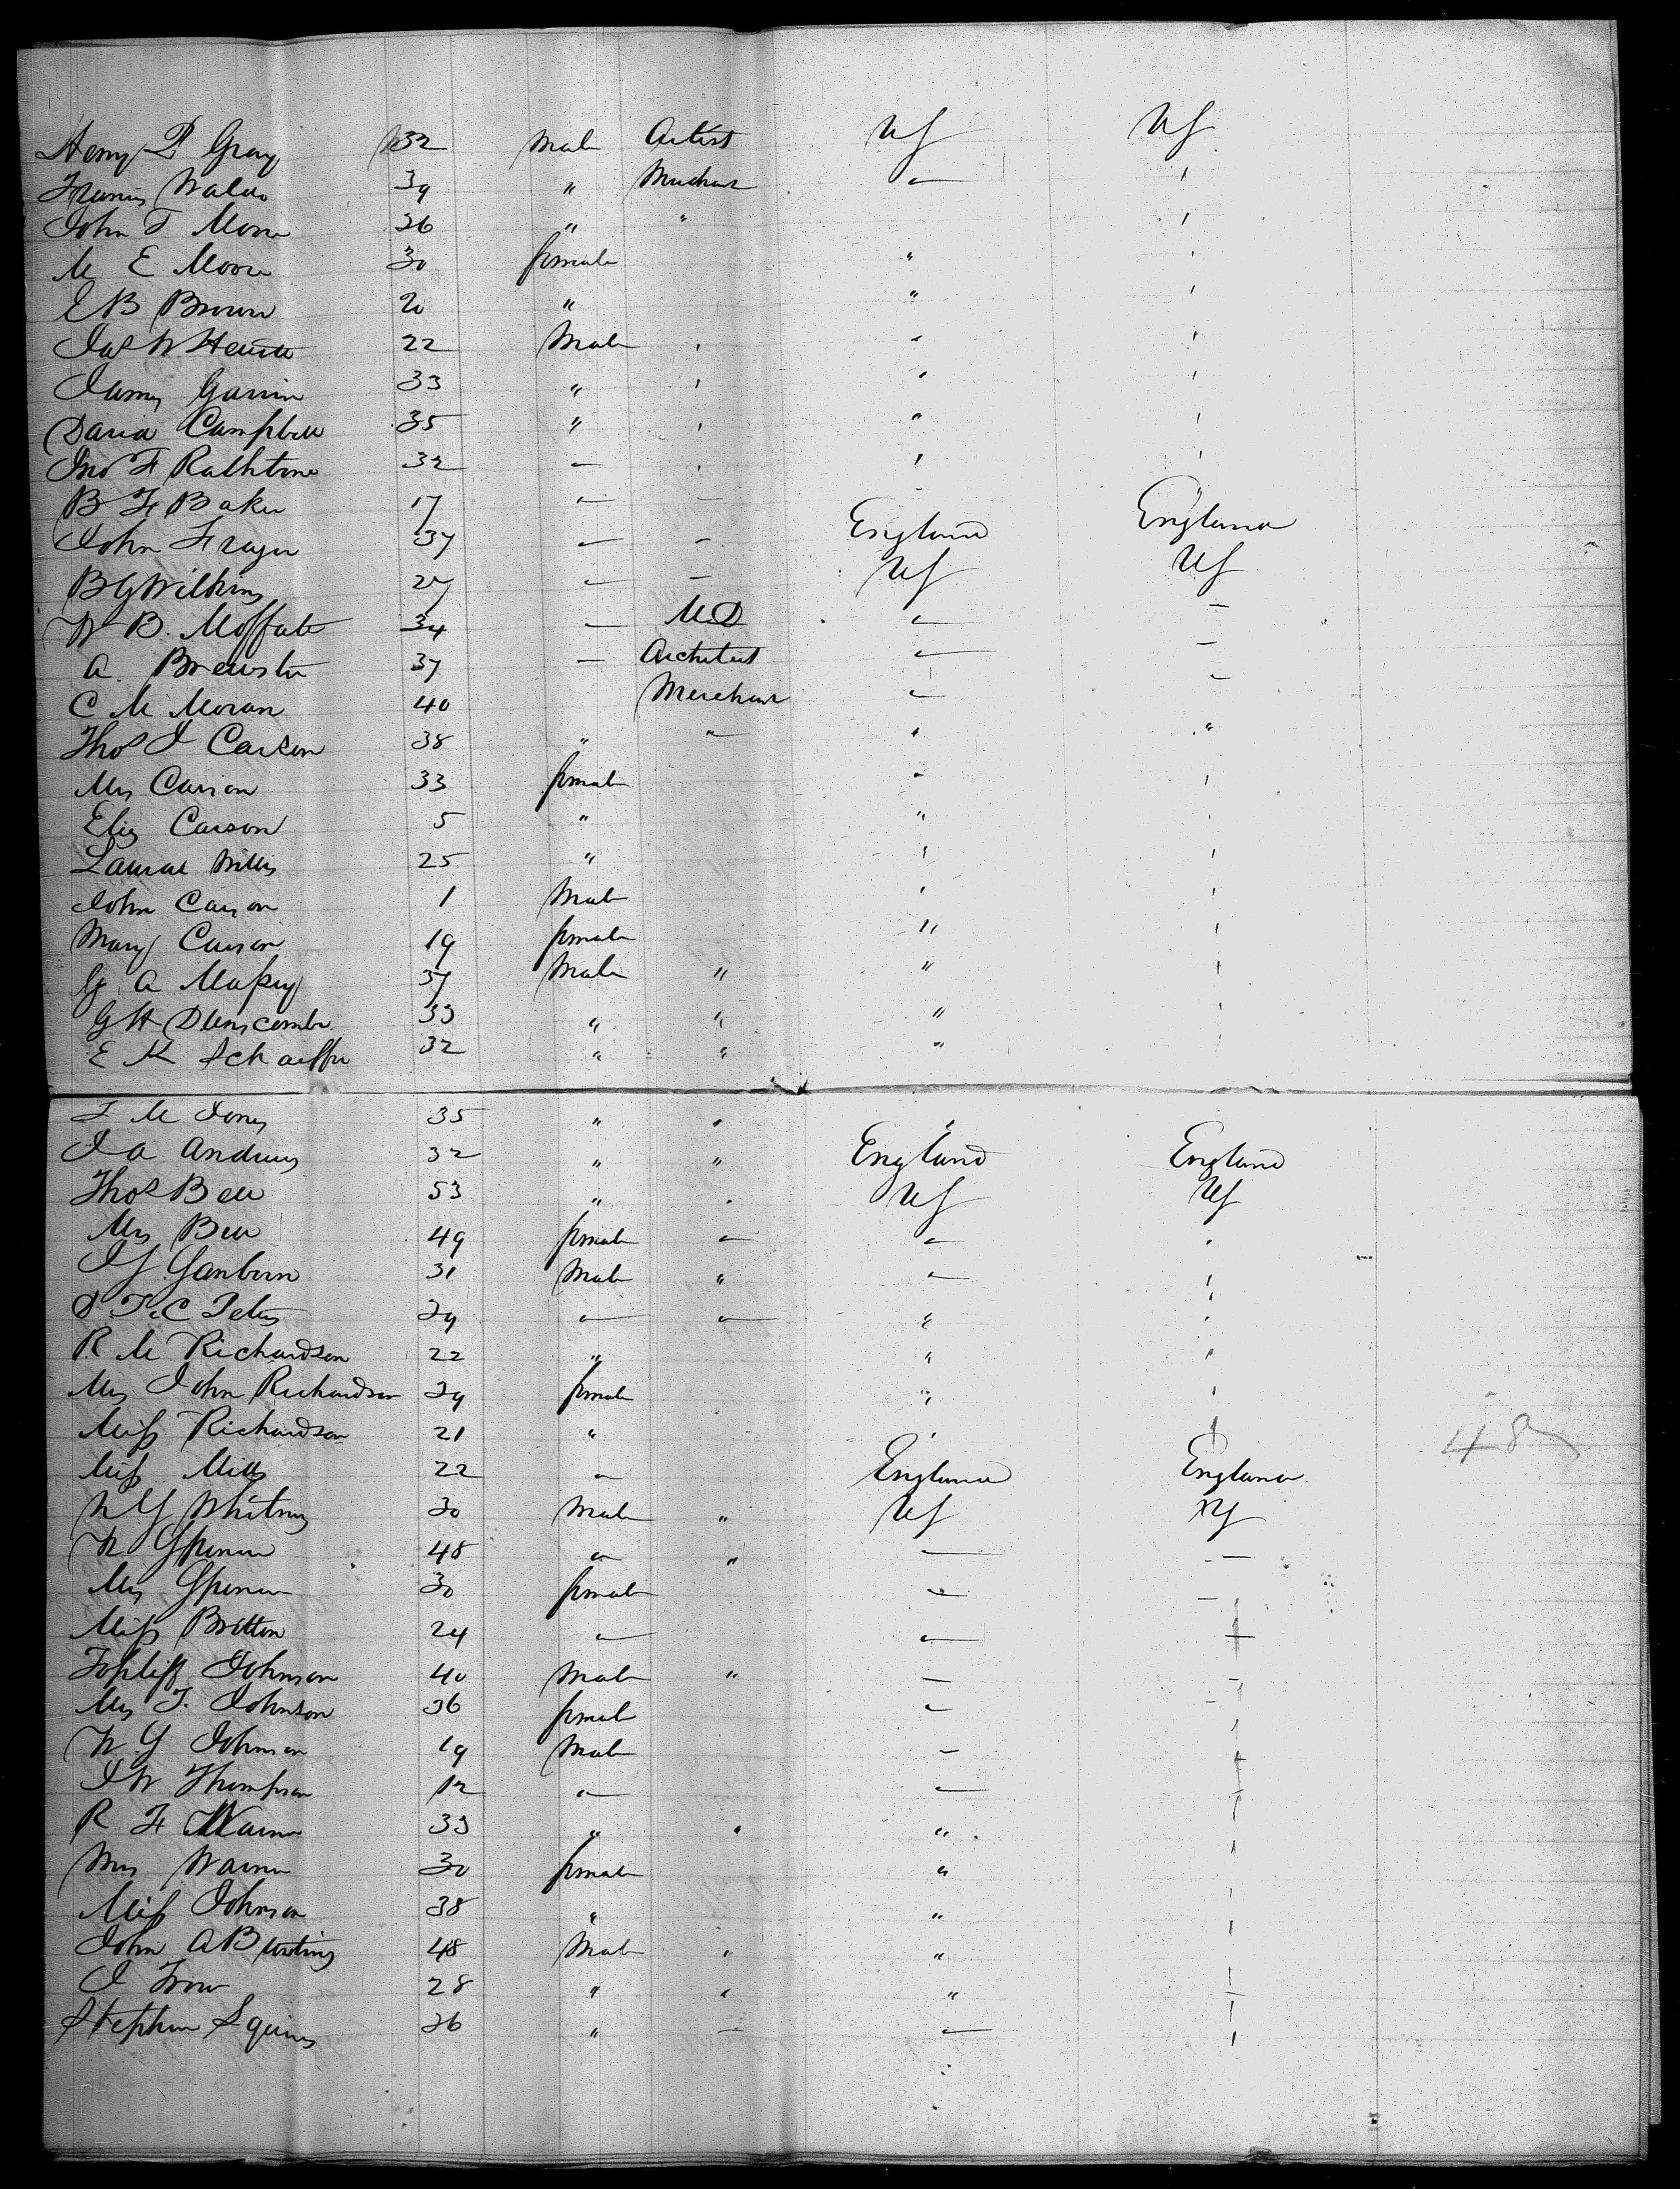 Henry P Gray 32 Male Artist US US
Francis Waldo 39 " Merchant — '
John T Moore 36 " " '
M E Moore 30 female " '
E B Brown 20 " " '
Jas W 22 Male ' " '
James Garvin 33 " ' " '
David Campbell 35 " ' " '
Jno F Rathbone 32 — ' ' '
B F Baker 17 — — - "
John Frazer 37 — — England England
B G Wilkins 27 — — US US
W B. Moffatt 34 — M.D — —
A. Brewster 37 — Architect — —
C M Moran 40 Merchant — —
Thos J Carson 38 " — " "
Mrs Carson 33 female " '
Eliz Carson 5 " " '
Laurae Willis 25 " ' '
John Carson 1 Male ' '
Mary Carson 19 female " '
G A Massey 37 Male " " '
G H Dunscombe 33 " " " '
E K Schaeffer 32 " " "
T M Jones 35 " " "
J A Andrews 32 " " England England
Thos Bell 53 " " US US
Mrs Bell 49 female — — '
J S Sanborn 31 Male " — '
D T. C Peters 29 — — " '
R M Richardson 22 " " '
Mrs John Richardson 29 female " '
Miss Richardson 21 " " '
48
Miss Mills 22 — England England
W S Whitney 30 Male " US US
W Spencer 48 — " — —
Mrs Spencer 30 female — —
Miss Britton 24 — — —
Topliff Johnson 40 Male " — —
Mrs T. Johnson 36 female — —
W S Johnson 19 Male — '
J W Thompson 12 — — '
R F Warner 33 " " " '
Mrs Warner 30 female " '
Miss Johnson 38 " " '
John A Bunting 48 Male " " '
J Trow 28 " " " '
Stephen Squires 26 " — — '